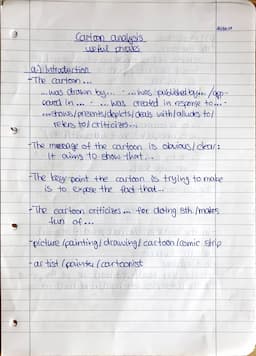 Cartoon analysis
useful phrases
a) Introduction
-The cartoon ...
...was drawn by... - ...was published by... /app-
eared in ... - ... was created in response to... -
...shows/presents/depicts/deals with/alludes to/
refers to/criticizes...
-The message of the cartoon is obvious/clear:
it aims to show that...
-The key point the cartoon is trying to make
is to expose the fact that...
-The cartoon criticizes ... for doing sth./makes
fun of ...
-picture/painting/drawing/cartoon/comic strip
-artist/painter/cartoonist